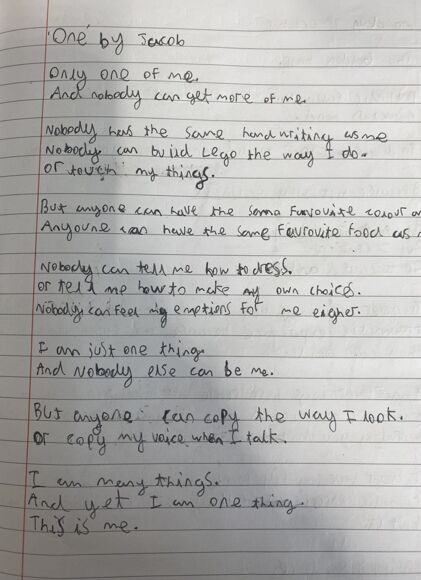 'One' by Jacob
Only one of me.
And nobody can get more of me.
Nobody has the same handwriting as me
Nobody can build Lego the way I do.
Or touch my things.
But anyone can have the samna favouite colour
Anyoune can have the same favrovite food as
Nobody can tell me how to dress.
or tell me how to make my own choices.
Nobody can feel my emptions for me eigher.
I am just one thing.
And Nobody else can be me.
But anyone can copy the way I look.
Or copy my voice when I talk.
I am many things.
And yet I am one thing.
This is me.